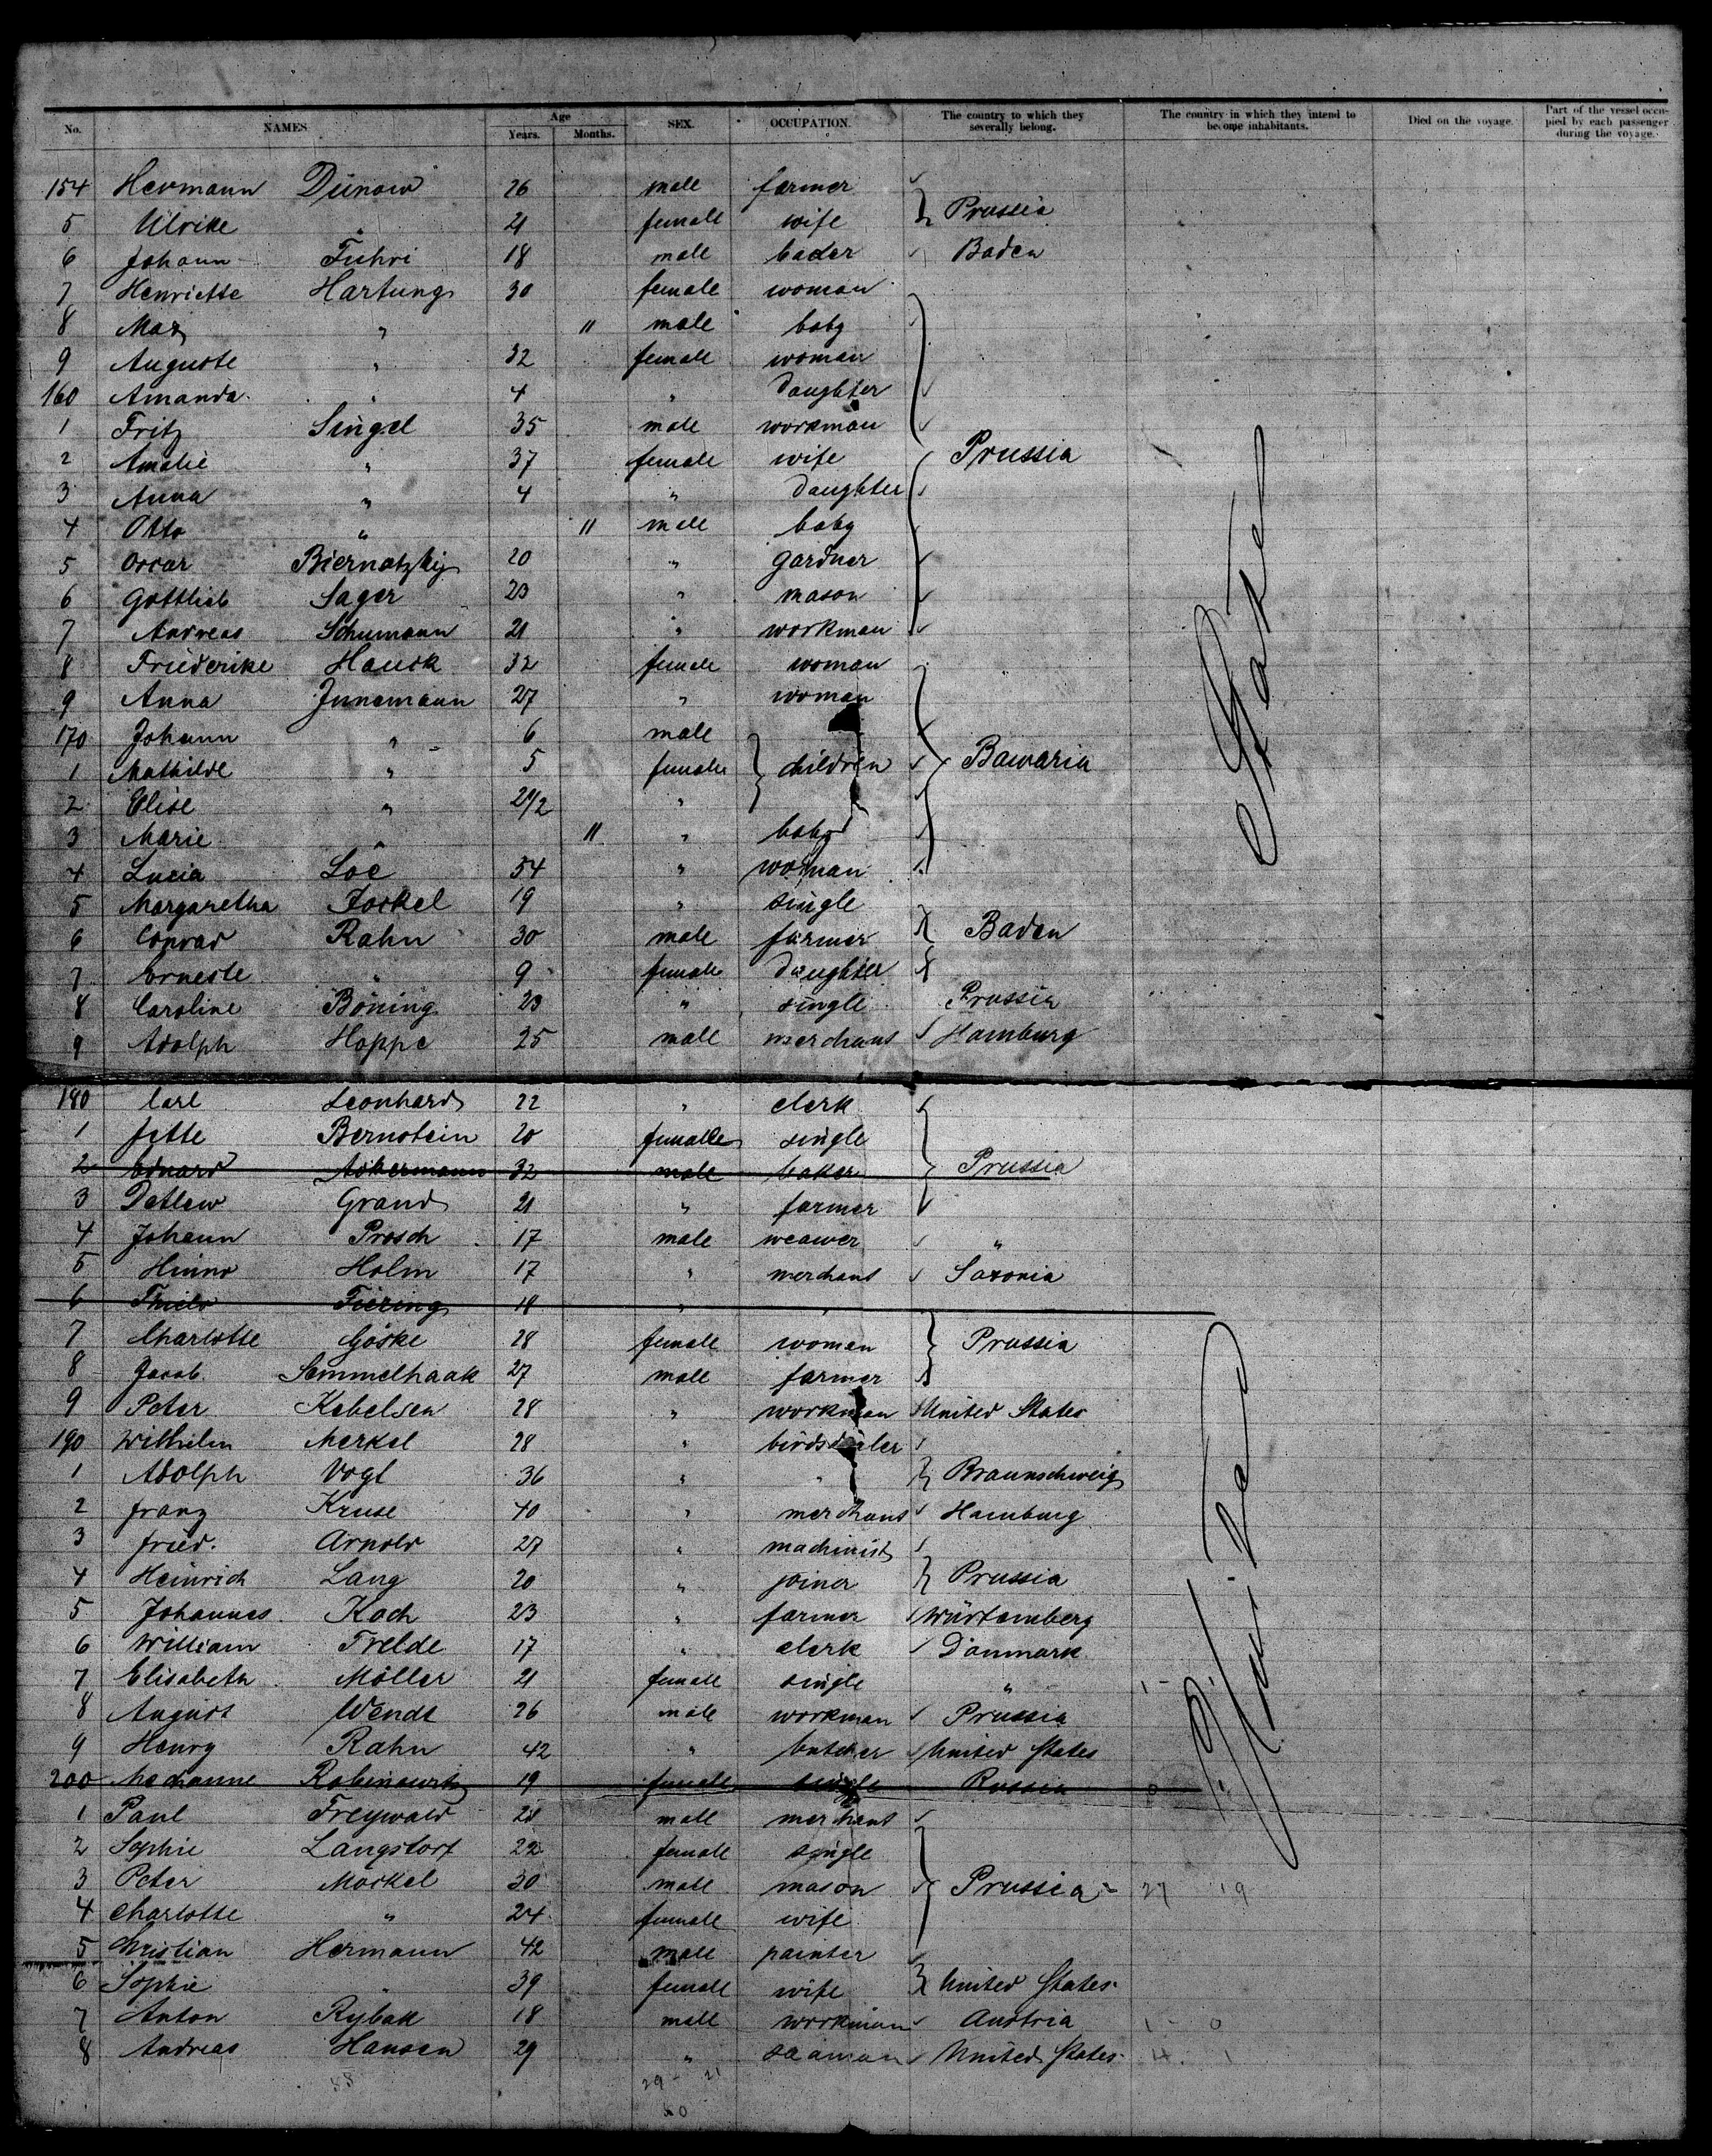 No. NAMES Age Years. Months. SEX. OCCUPATION. The country to which they severally belong. The country in which they intend to become inhabitants. Died on the voyage. Part of the vessel occupied by each passenger during the voyage.
154 Hermann Dünow 26 male farmer
5 Ulrike " 21 female wife Prussia
6 Johann Fuhri 18 male bader Baden
7 Henriette Hartung 30 female woman
8 Max " 11 male baby
9 Auguste " 32 female woman
160 Amanda " 4 " daughter
1 Fritz Singel 35 male workman
2 Amalie " 37 female wife Prussia
3 Anna " 4 " daughter
4 Otto " 11 male baby
5 Oscar Biernatzky 20 " gardner
6 Gottlieb Sager 23 " mason
7 Andreas Schumann 21 " workman
8 Friederike Hauck 32 female woman
9 Anna Junemann 27 " woman
170 Johann " 6 male
1 Mathilde " 5 female children Bawaria
2 Elise " 2 1/2 "
3 Marie " 11 " baby
4 Lucia Loe 54 " woman
5 Margaretha Forkel 19 " single
6 Conrad Rahn 30 male farmer Baden
7 Erneste " 9 female daughter
8 Caroline Böning 23 " single Prussia
9 Adolph Hoppe 25 male merchant Hamburg
180 Carl Leonhard 22 " clerk
1 Jette Bernstein 20 female single
2 Eduard Ackermann 32 male baker Prussia
3 Detlew Grand 21 " farmer
4 Johann Prosch 17 male weawer "
5 Holm 17 " merchant Saxonia
6 Thielo 18 " "
7 Charlotte Göske 28 female woman Prussia
8 Jacob Semmelhaak 27 male farmer
9 Peter Kebelsen 28 " workman United States
190 Wilhelm Merkel 28 " birdsdealer
1 Adolph Vogt 36 " " Braunschweig
2 Franz Kruse 40 " merchant Hamburg
3 Fried. Arnold 27 " machinist
4 Heinrich Lang 20 " joiner Prussia
5 Johannes Koch 23 " farmer Würtemberg
6 William Trelde 17 " clerk Danmark
7 Elisabeth Möller 21 female single " 1 -
8 August Wendt 26 male workman Prussia
9 Henry Rahn 42 " butcher United States
200 Robinowitz 19 female single Russia
1 Paul Freywald 21 male merchant
2 Sophie Langstorf 22 female single
3 Peter Morkel 30 male mason Prussia 27 19
4 Charlotte " 24 female wife
5 Christian Hermann 42 male painter
6 Sophie " 39 female wife United States
7 Anton Rybak 18 male workman Austria 1 - 0
8 Andreas Hansen 29 " seaman United States 4 1
29 - 21